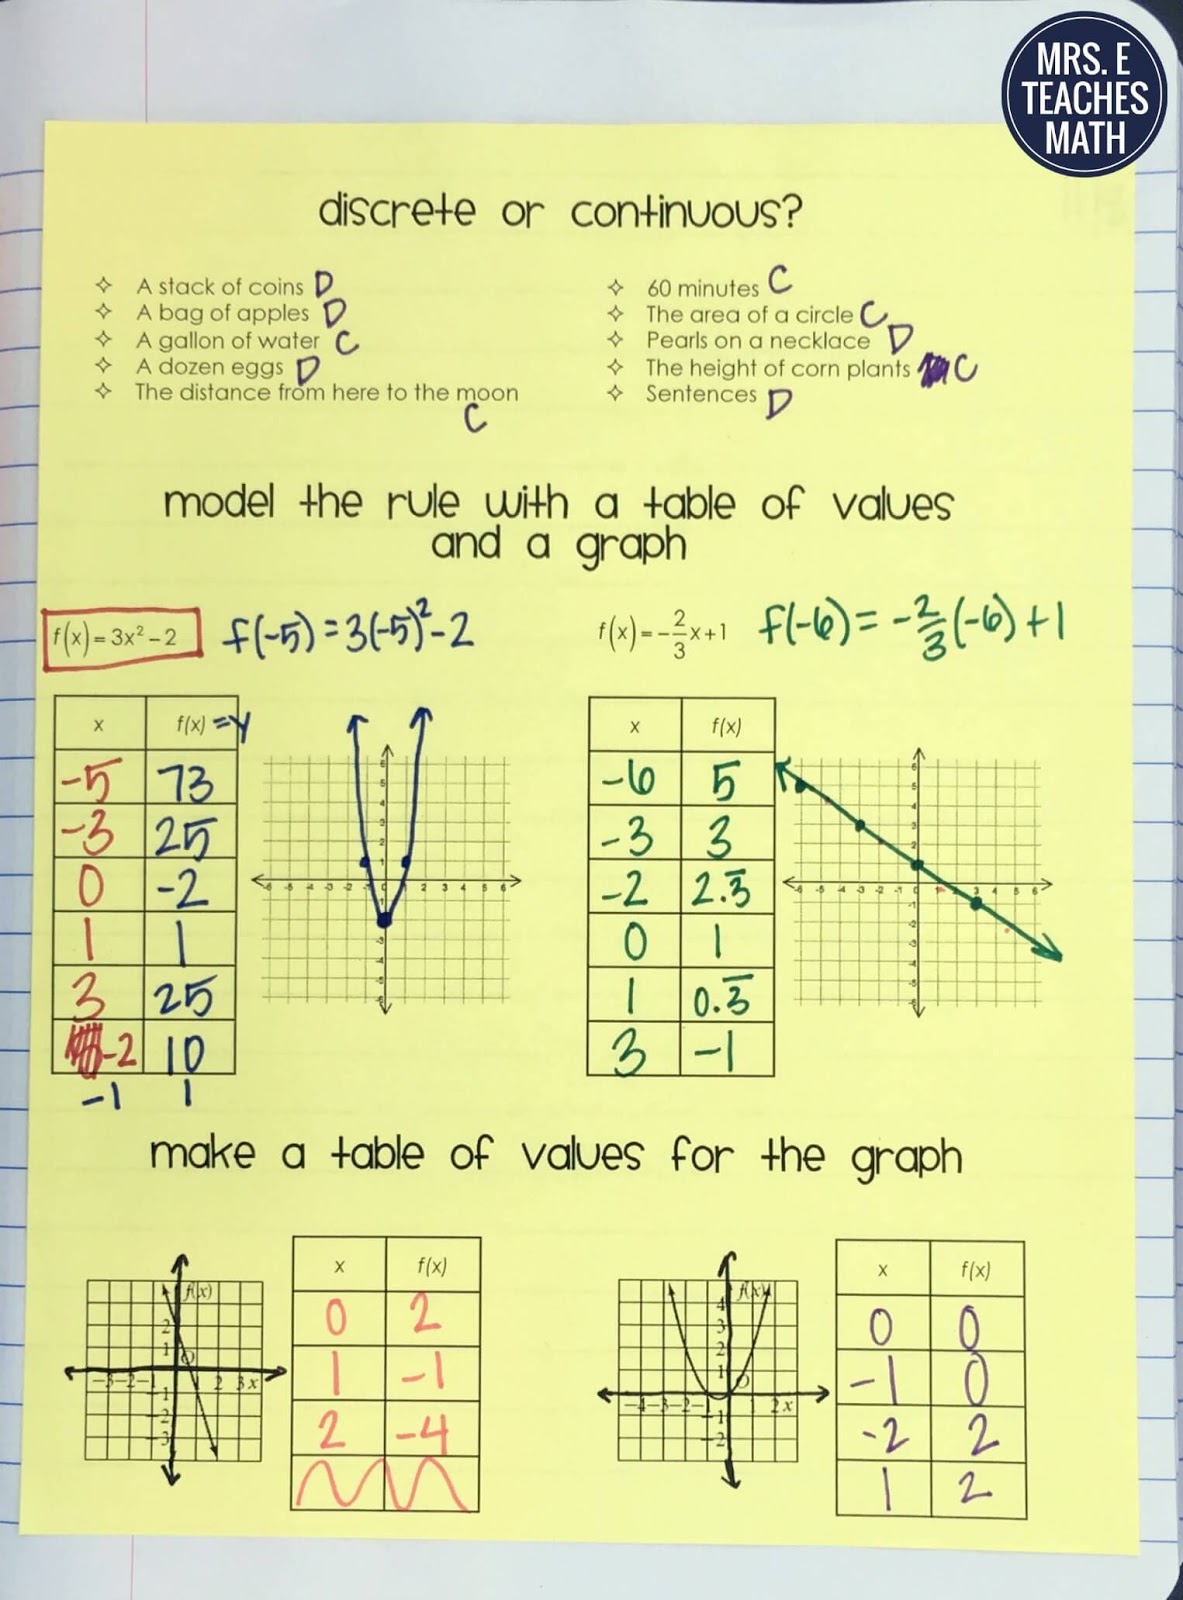 MRS. E
TEACHES
MATH
discrete or continuous?
✧ A stack of coins D
✧ A bag of apples D
✧ A gallon of water C
✧ A dozen eggs D
✧ The distance from here to the moon
C
✧ 60 minutes C
✧ The area of a circle C
✧ Pearls on a necklace D
✧ The height of corn plants C
✧ Sentences D
model the rule with a table of values
and a graph
f(x) = 3x² − 2 f(-5) = 3(-5)² - 2
x f(x) = y
-5 73
-3 25
0 -2
1 1
3 25
-2 10
-1 1
f(x) = −2/3x + 1 f(-6) = -2/3(-6) + 1
x f(x)
-6 5
-3 3
-2 2.3̅
0 1
1 0.3̅
3 -1
make a table of values for the graph
f(x)
2
1
O
−3 −2 −1 2 3x
−1
−2
−3
x f(x)
0 2
1 -1
2 -4
f(x)
4
3
2
1
O
−4 −3 −2 −1 2x
−1
−2
x f(x)
0 0
-1 0
-2 2
1 2